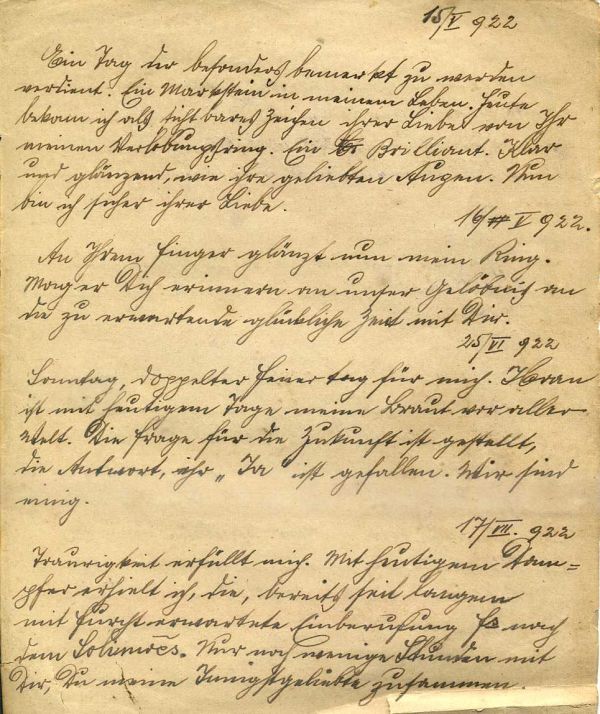 15/V 922
Ein Tag der besonders bemerkt zu werden
verdient. Ein Markstein in meinem Leben. Heute
bekam ich als sichtbares Zeichen ihrer Liebe von Ihr
meinen Verlobungsring. Ein Brilliant. Klar
und glänzend, wie ihre geliebten Augen. Nun
bin ich sicher ihrer Liebe.
16/V 922.
An Ihrem Finger glänzt nun mein Ring.
Mag er Dich erinnern an unser Gelöbnis an
die zu erwartende glückliche Zeit mit Dir.
25/VI 922
Sonntag, doppelter Feiertag für mich.
ist mit heutigem Tage meine Braut vor aller
Welt. Die Frage für die Zukunft ist gestellt,
die Antwort, ihr „Ja" ist gefallen. Wir sind
einig.
17/VII. 922
Traurigkeit erfüllt mich. Mit heutigem Dam=
pfer erhielt ich, die, bereits seit langem
mit Furcht erwartete Einberufung nach
dem Solimões. Nur noch wenige Stunden mit
Dir, Du meine Innigstgeliebte zusammen.